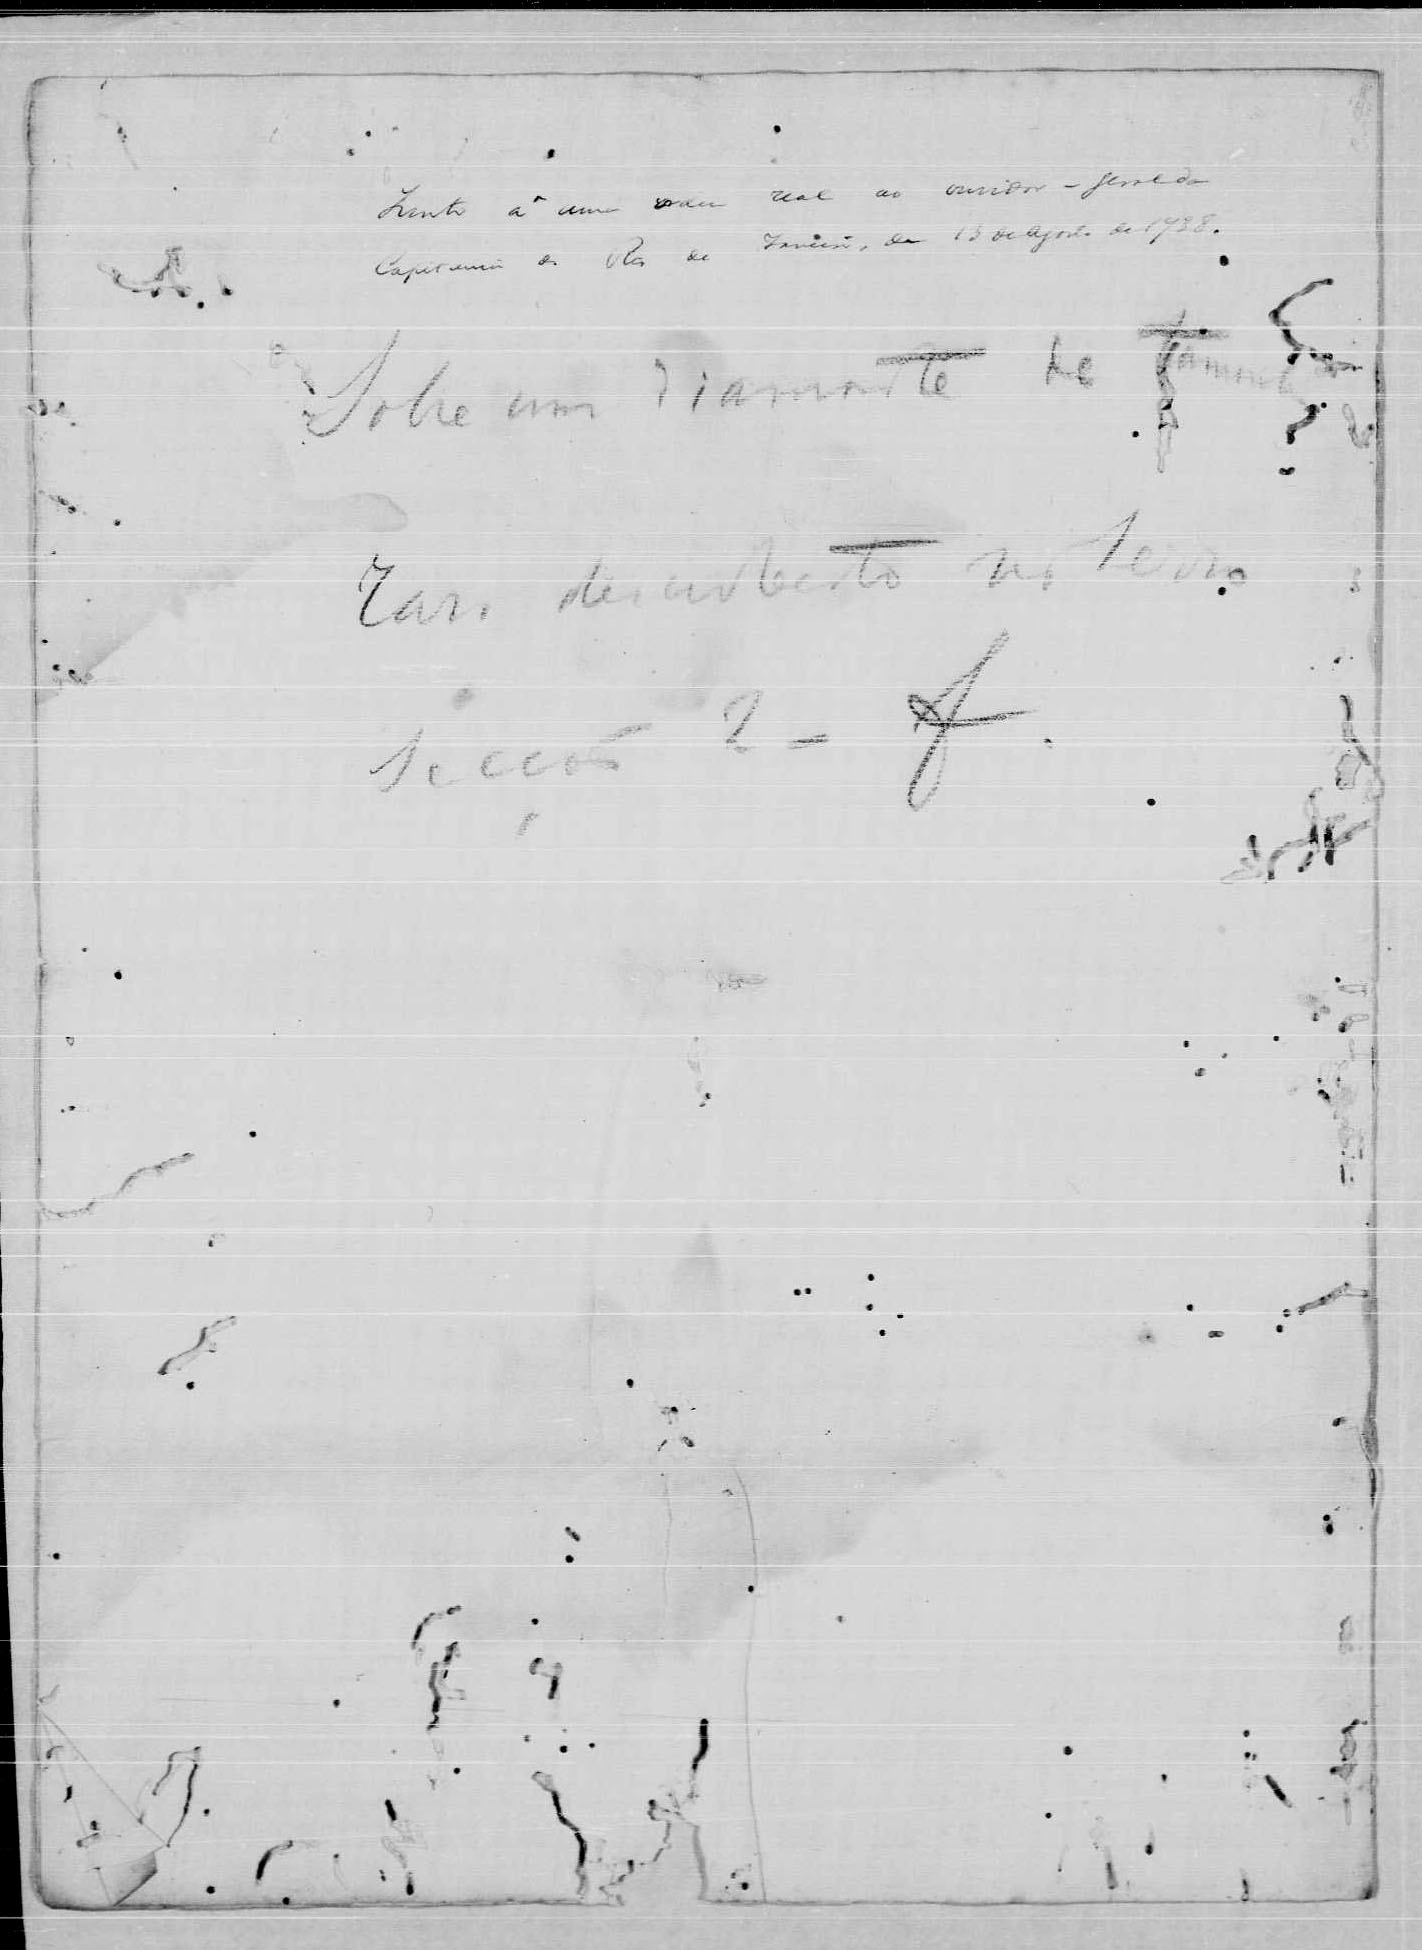 Junto à uma ordem real ao ouvidor-geral da
Capitania do Rio de Janeiro, de 13 de agosto de 1738.
Sobre um diamante de tamanho
raro descuberto no Serro
Secção 2 -